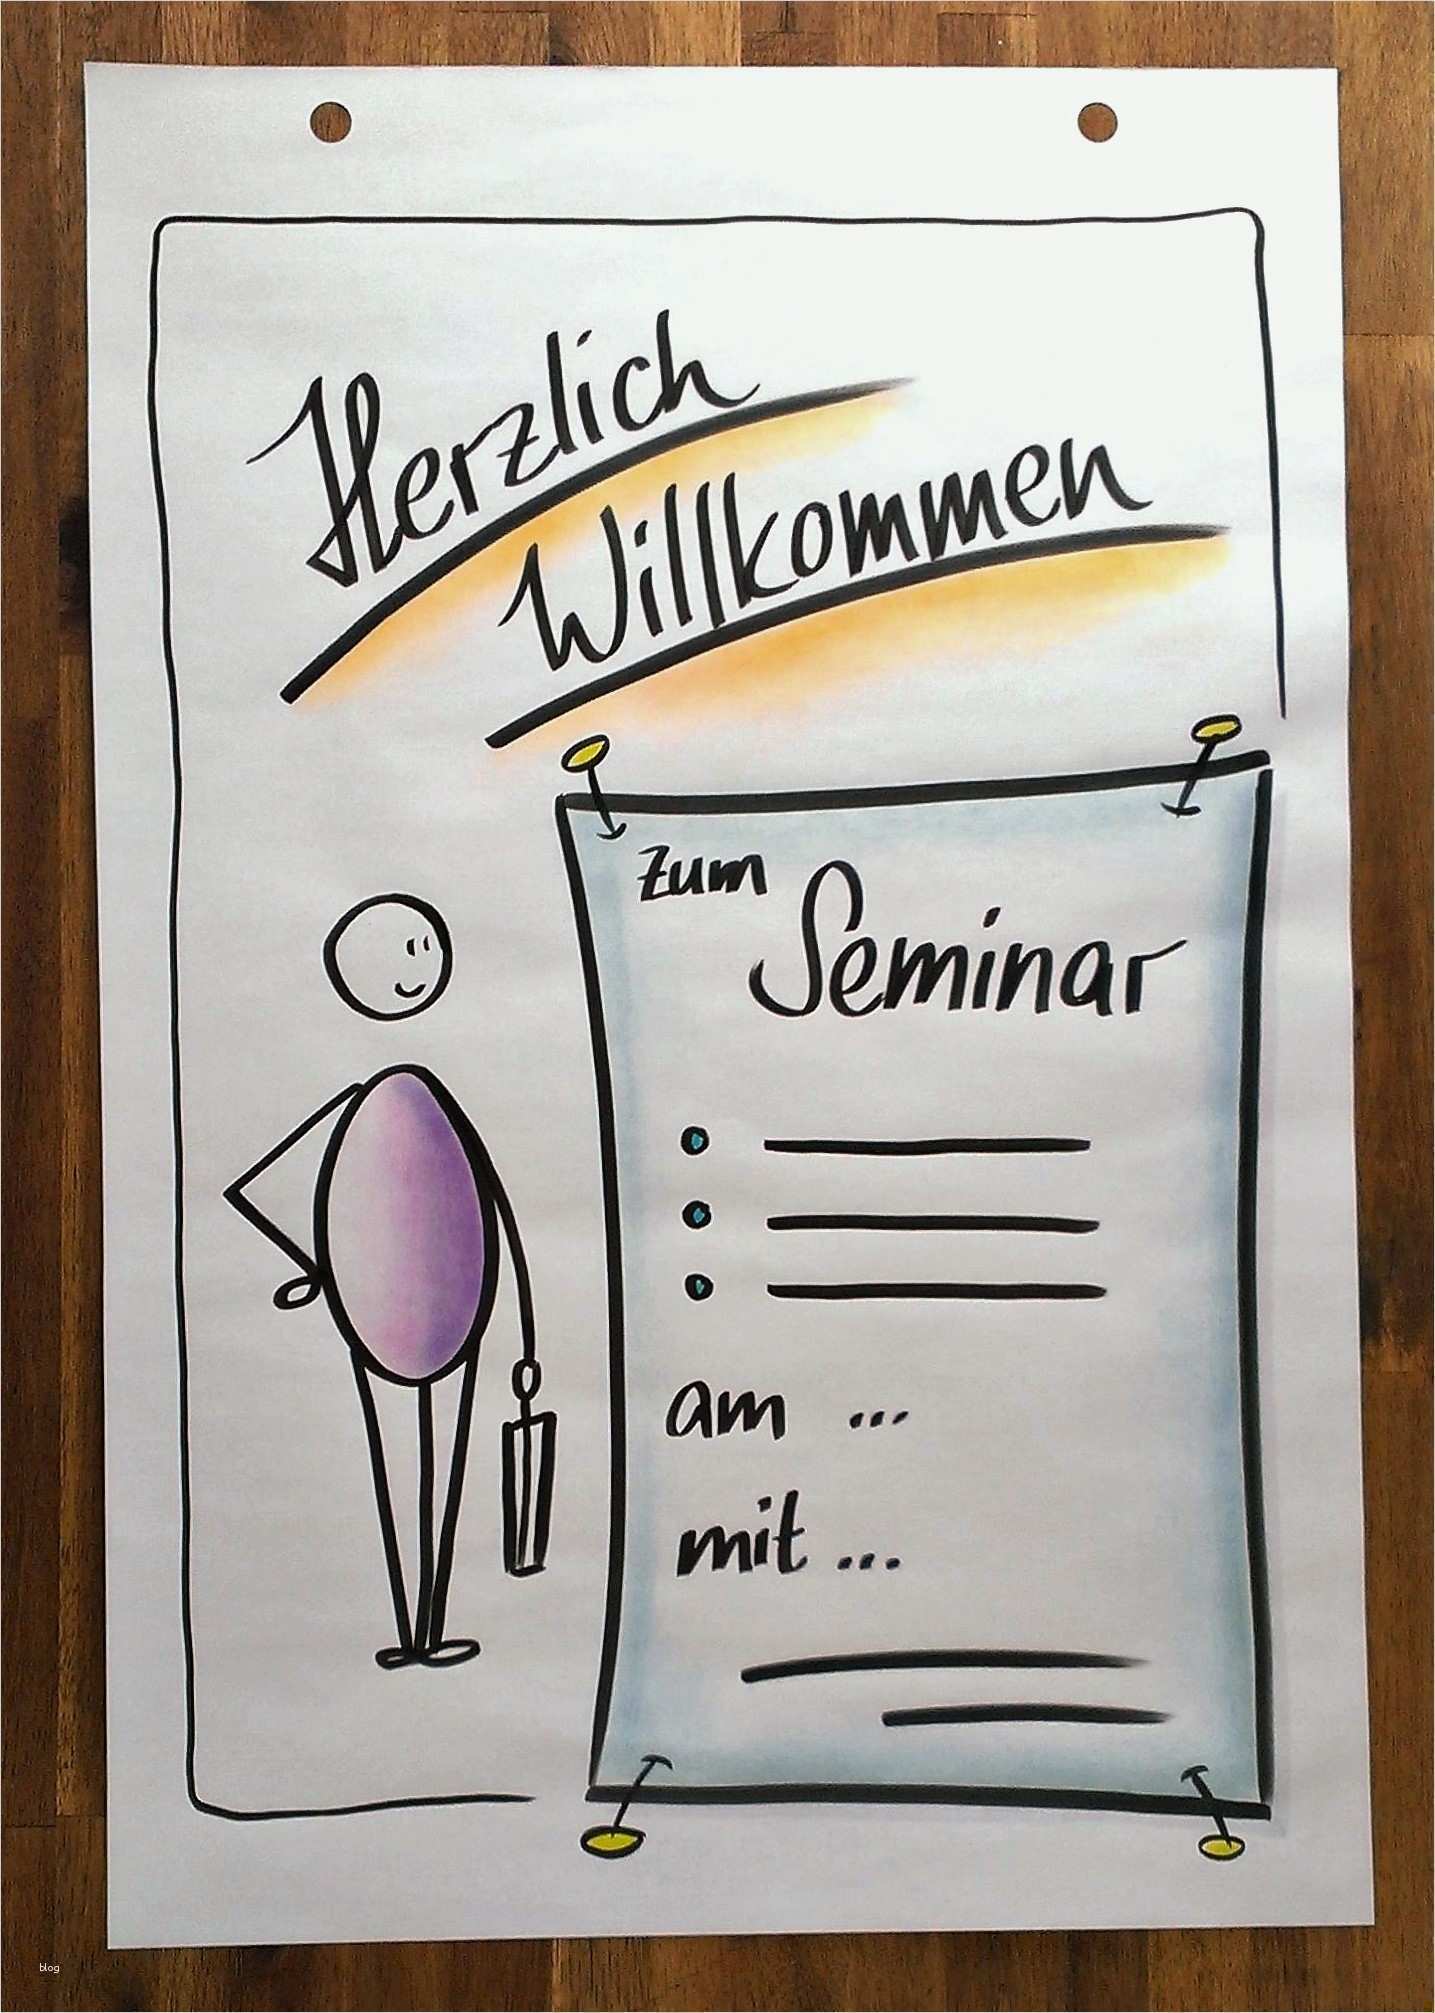 Herzlich
Willkommen
zum
Seminar
am ...
mit ...
blog